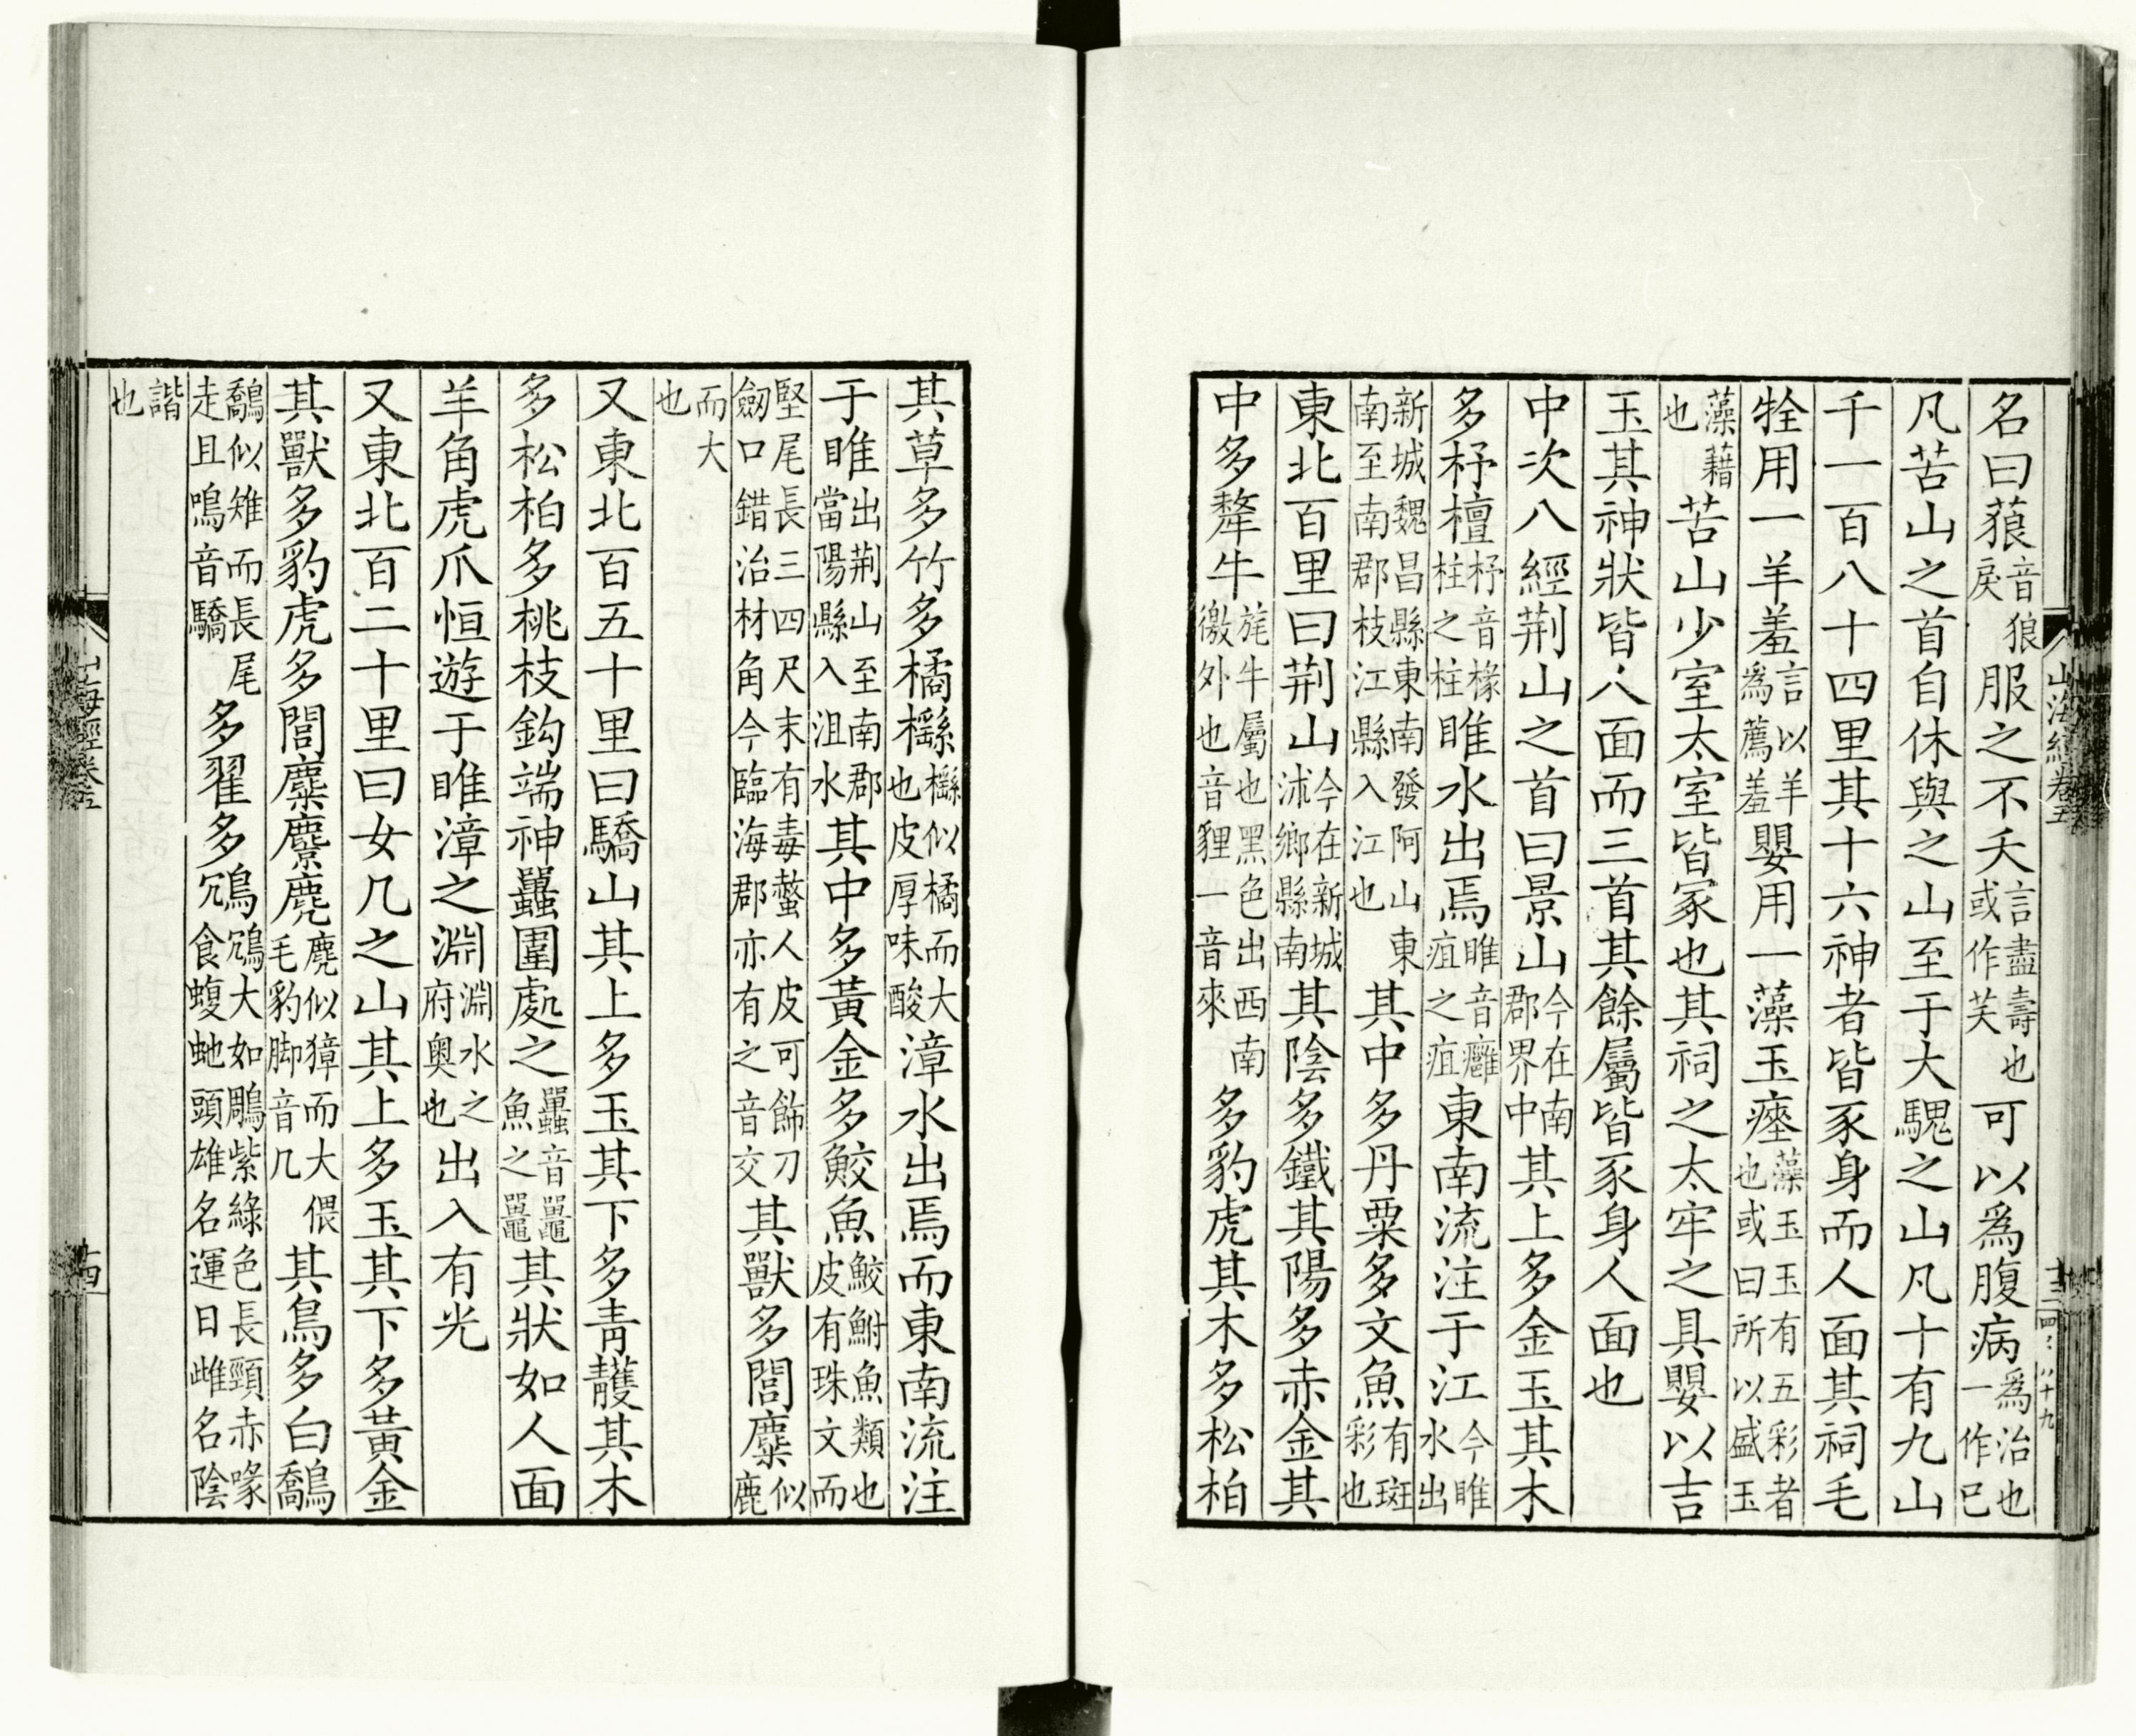 名曰蓈音狼戾服之不夭言盡壽也或作芙可以爲腹病爲治也一作已
凡苦山之首自休與之山至于大騩之山凡十有九山
千一百八十四里其十六神者皆豕身而人面其祠毛
牷用一羊羞言以羊爲薦羞嬰用一藻玉瘞藻玉玉有五彩者也或曰所以盛玉
藻藉也苦山少室太室皆冢也其祠之太牢之具嬰以吉
玉其神狀皆人面而三首其餘屬皆豕身人面也
中次八經荆山之首曰景山今在南郡界中其上多金玉其木
多杼檀杼音椽柱之柱睢水出焉睢音癰疽之疽東南流注于江今睢水出
新城魏昌縣東南發阿山東南至南郡枝江縣入江也其中多丹粟多文魚有斑彩也
東北百里曰荆山今在新城沭鄉縣南其陰多鐵其陽多赤金其
中多犛牛旄牛屬也黑色出西南徼外也音貍一音來多豹虎其木多松柏
山海經卷五
十三
其草多竹多橘櫾櫾似橘而大也皮厚味酸漳水出焉而東南流注
于睢出荆山至南郡當陽縣入沮水其中多黃金多鮫魚鮫鮒魚類也皮有珠文而
堅尾長三四尺末有毒螫人皮可飾刀劒口錯治材角今臨海郡亦有之音交其獸多閭麋似鹿
而大也
又東北百五十里曰驕山其上多玉其下多青雘其木
多松柏多桃枝鈎端神䰠圍處之䰠音鼉魚之鼉其狀如人面
羊角虎爪恒遊于睢漳之淵淵水之府奥也出入有光
又東北百二十里曰女几之山其上多玉其下多黃金
其獸多豹虎多閭麋麖麂麂似獐而大偎毛豹脚音几其鳥多白鷮
鷮似雉而長尾走且鳴音驕多翟多鴆鴆大如鵰紫綠色長頸赤喙食蝮虵頭雄名運日雌名陰
諧也
山海經卷五
十四